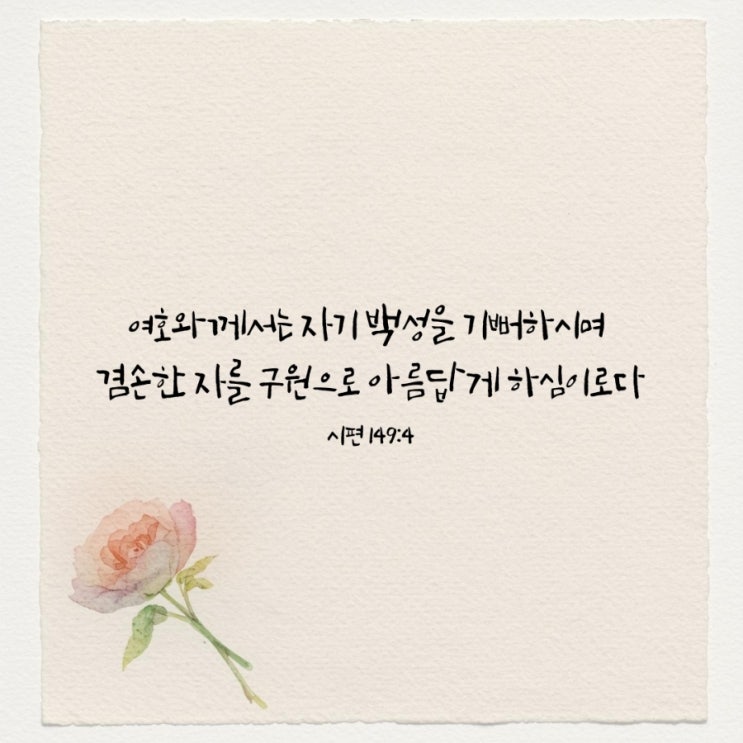 여호와께서는 자기 백성을 기뻐하시며
겸손한 자를 구원으로 아름답게 하심이로다
시편 149:4